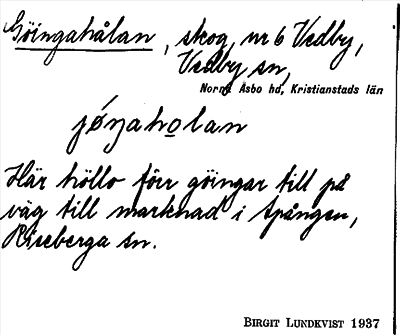 Göingahålan, skog, nr 6 Vedby,
Vedby sn,
Norra Åsbo hd, Kristianstads län
jøŋaholan
Här höllo förr göingar till på
väg till marknad i Spången,
Riseberga sn.
BIRGIT LUNDKVIST 1937